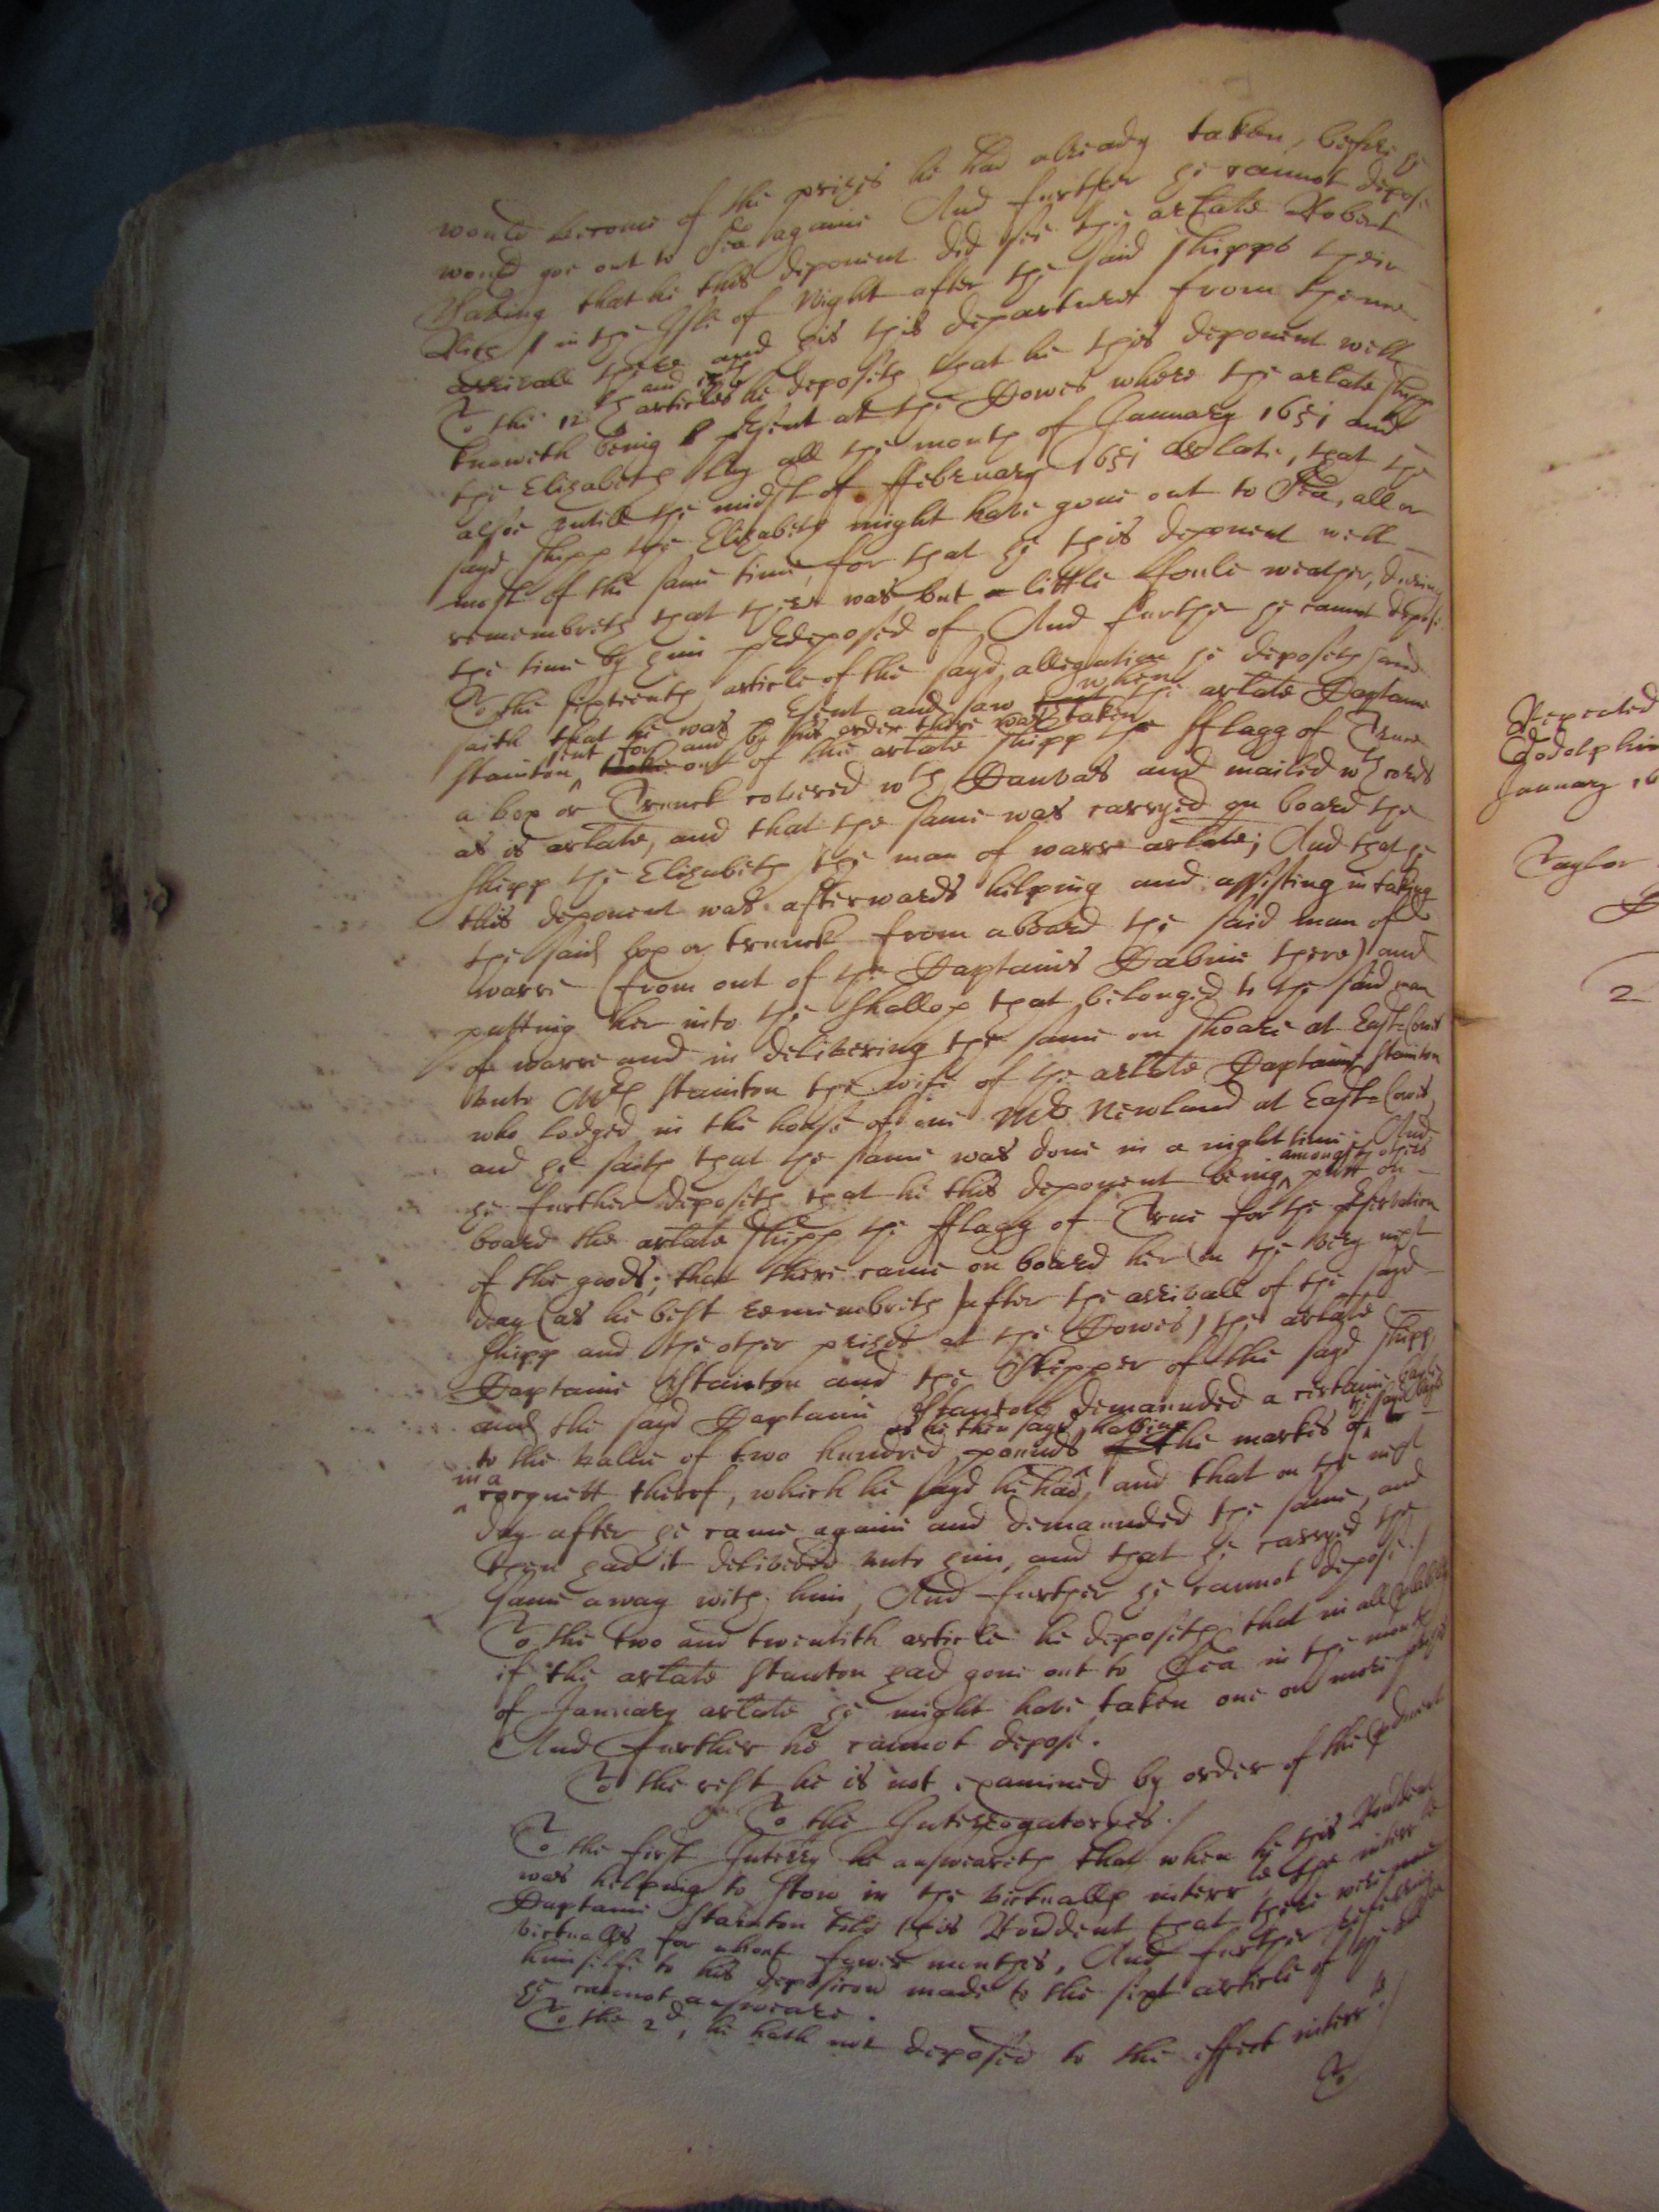 would become of the prizes he had already taken, before he
would goe out to Sea againe And further he cannot depose
Saving that he this deponent did see the arlate Robert
Rich in the Isle of Wight after the said shipps their
arrivall there and his this departure from thence
To the 12th and 13th articles he deposeth that he this deponent well
knoweth being present at the Cowes where the arlate shipp
the Elizabeth lay all the month of January 1651 and
alsoe untill the midst of ffebruary 1651 arlate, that the
sayd shipp the Elizabeth might have gone out to Sea, all or
most of the same time, for that he this deponent well
remembreth that there was but a little foule weather, during
the time by him predeposed of, And further he cannot depose
To the sixteenth article of the sayd allegation he deposeth and
saith that he was present and saw when the arlate Captaine
Stainton sent for and by his order there was taken out of the arlate shipp the fflagg of Trure
a box or Trunck covered wth Canvas and mailed wth cords
as is arlate, and that the same was carryed on board the
shipp the Elizabeth the man of warr arlate; And that he
this deponent was afterwards helping and assisting in taking
the said box or trunck from aboard the said man of
warre (from out of the Captains Cabine there) and
putting her into the shallop that belonged to the said man
of warre and in delivering the same on shoare at East-Cowes
unto Mrs Stainton the wife of the arlate Captaine Stainton
who lodged in the house of one Mr Newland at East-Cowes,
and he saith that the same was done in a night time. And
he further deposeth that he this deponent being amongst others putt on
board the arlate shipp the fflagg of True for the preservation
of the goods; that there came on board her (on the very next
day (as he best remembreth) after the arrivall of the sayd
shipp and the other prizes at the Cowes) the arlate
Captaine Stainton and the Skipper of the sayd shipp,
and the sayd Captaine Stanton demaunded a certaine
to the value of two hundred pounds as he then sayd, having the markes of
in a coquett thereof, which he sayd he had, and that on the next
day after he came againe and demaunded the same, and
then had it delivered unto him, and that he carryed the
same away with him, And further he cannot depose./
To the two and twentith article he deposeth that in all probability
if the arlate Stanton had gone out to Sea in the month
of January arlate he might have taken one or more prizes
And further he cannot depose.
To the rest he is not examined by order of the producent
To the Interrogatoryes./
To the first Interry he answeareth that when he this Rondent
was helping to stow in the victualls interr the interr
Captaine Stainton told this Rondent that there were
victualls for about fower monthes, And further referring
himselfe to his deposicon made to the sixt article of
he cannot answeare.
To the 2d, he hath not deposed to the effect interr./
To
Repeated
Godolphin
January
Taylor
2